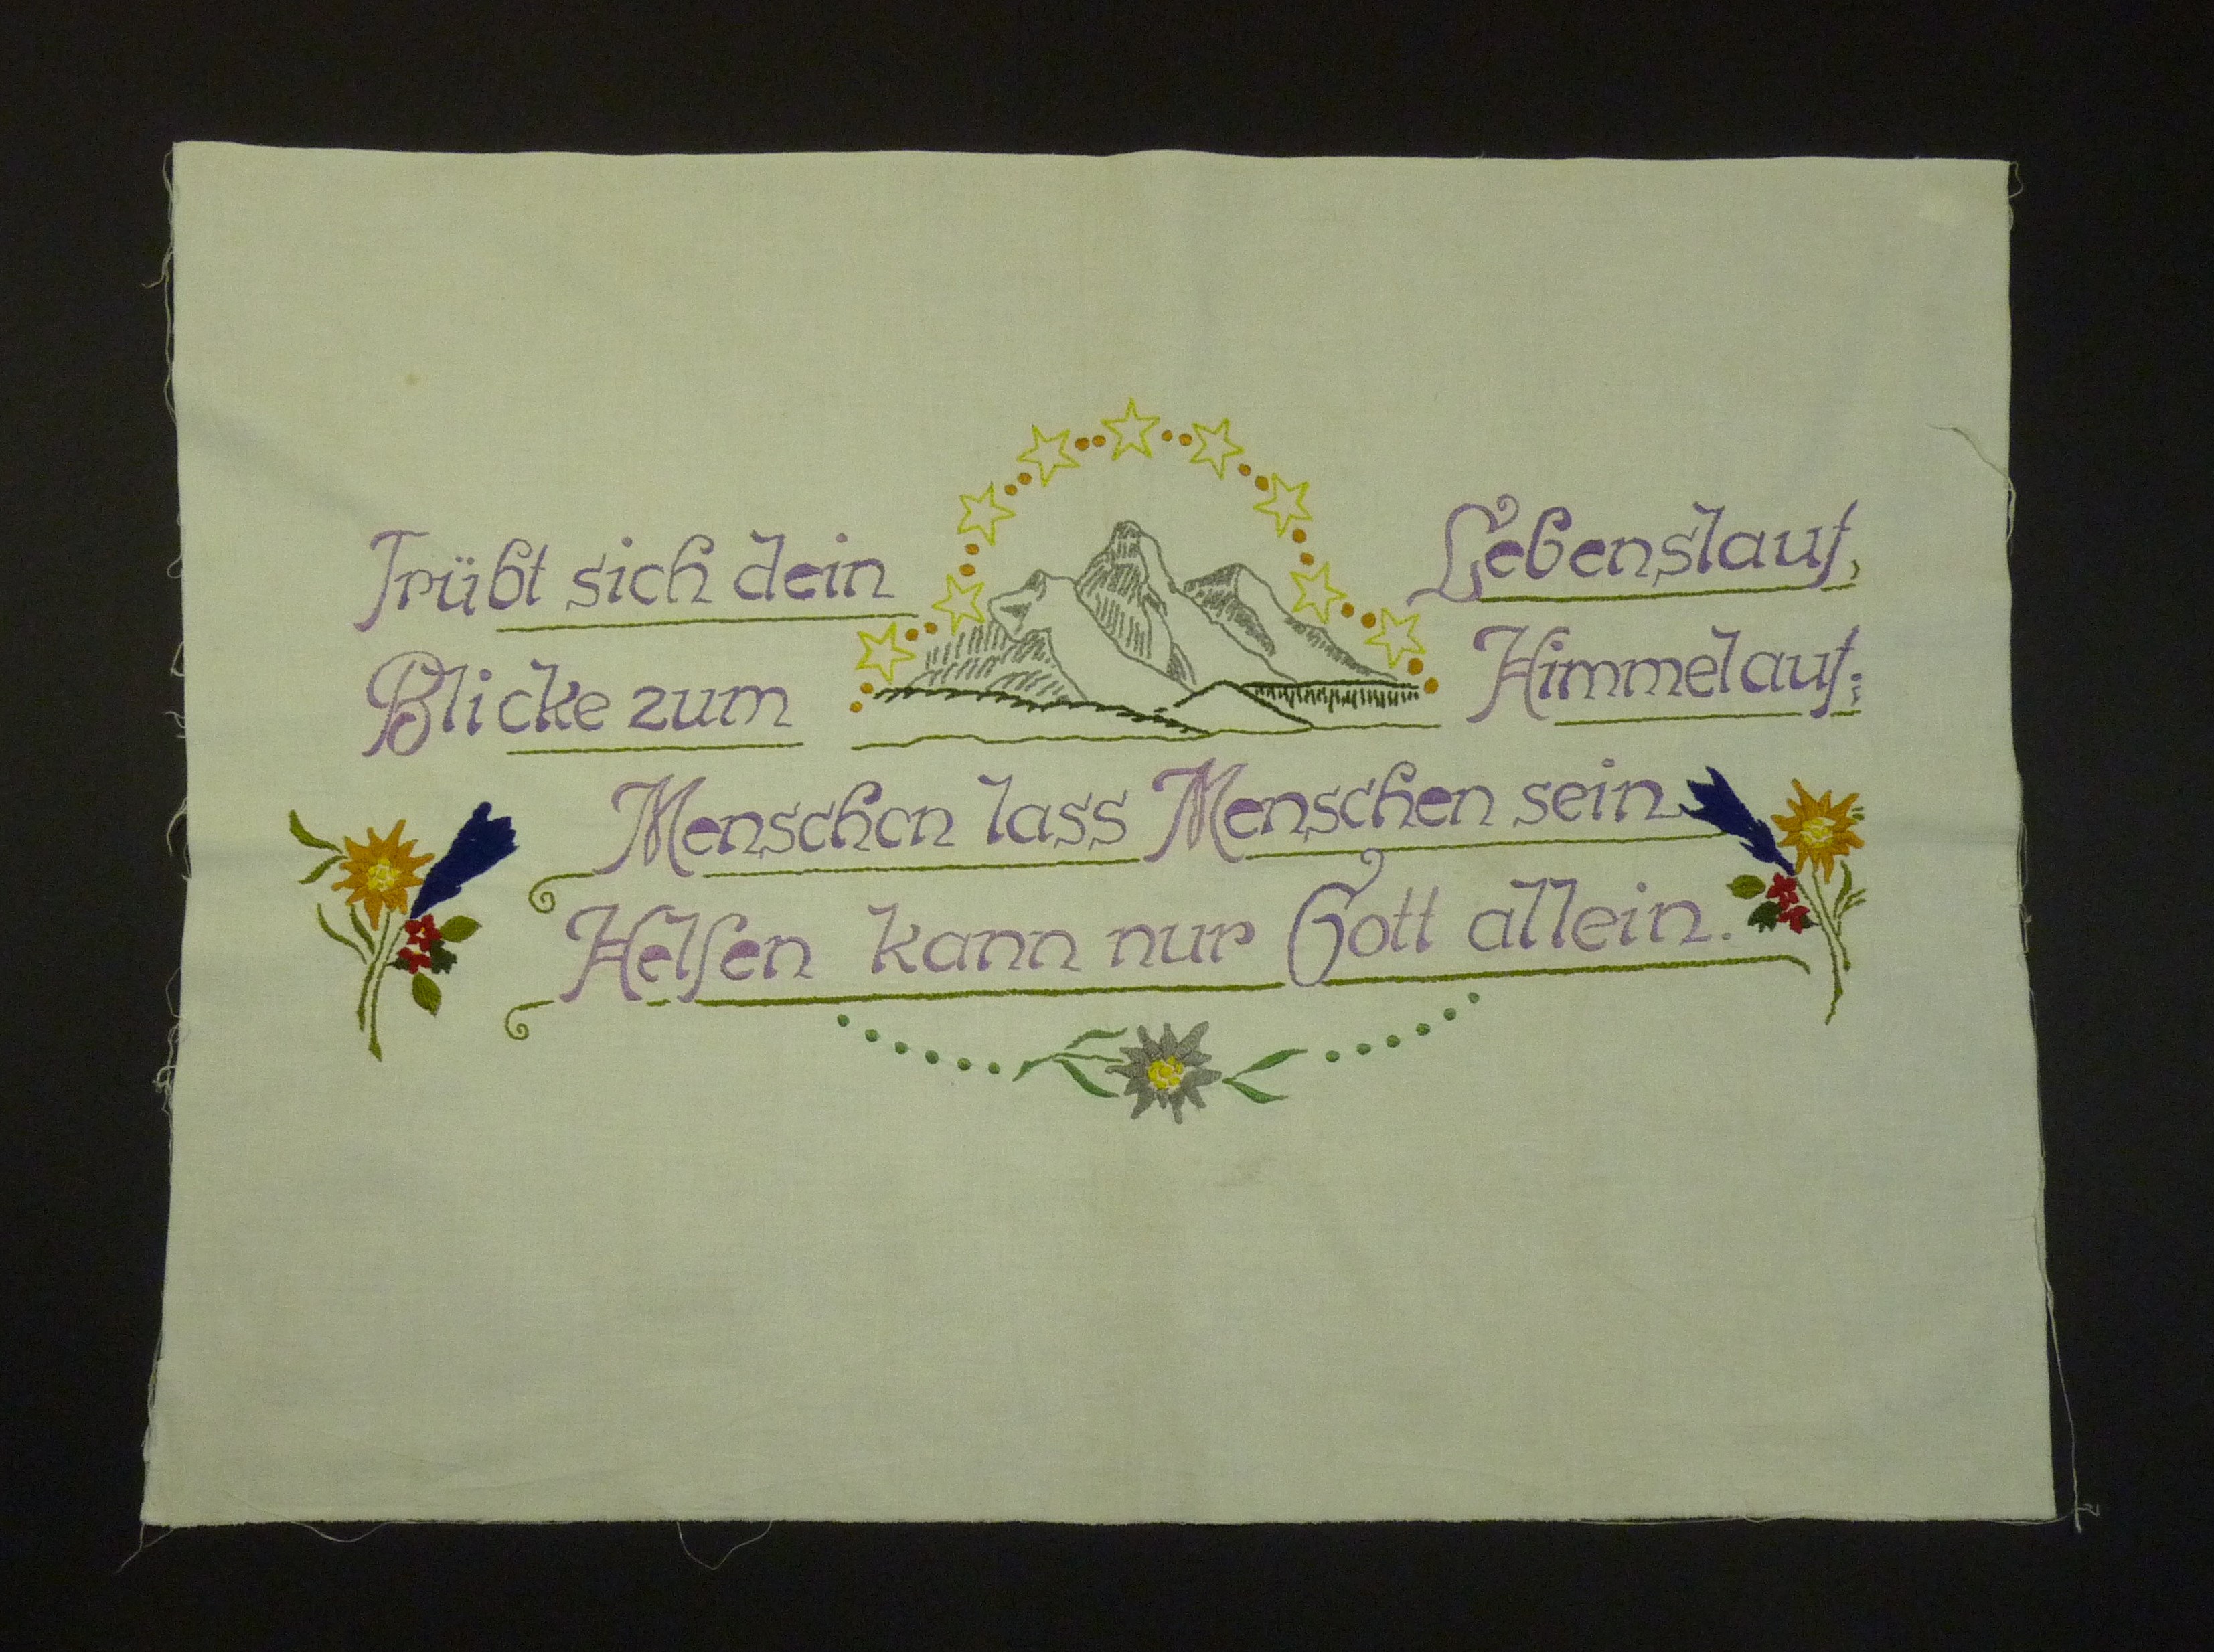 Trübt sich dein Lebenslauf,
Blicke zum Himmel auf:
Menschen lass Menschen sein
Helfen kann nur Gott allein.